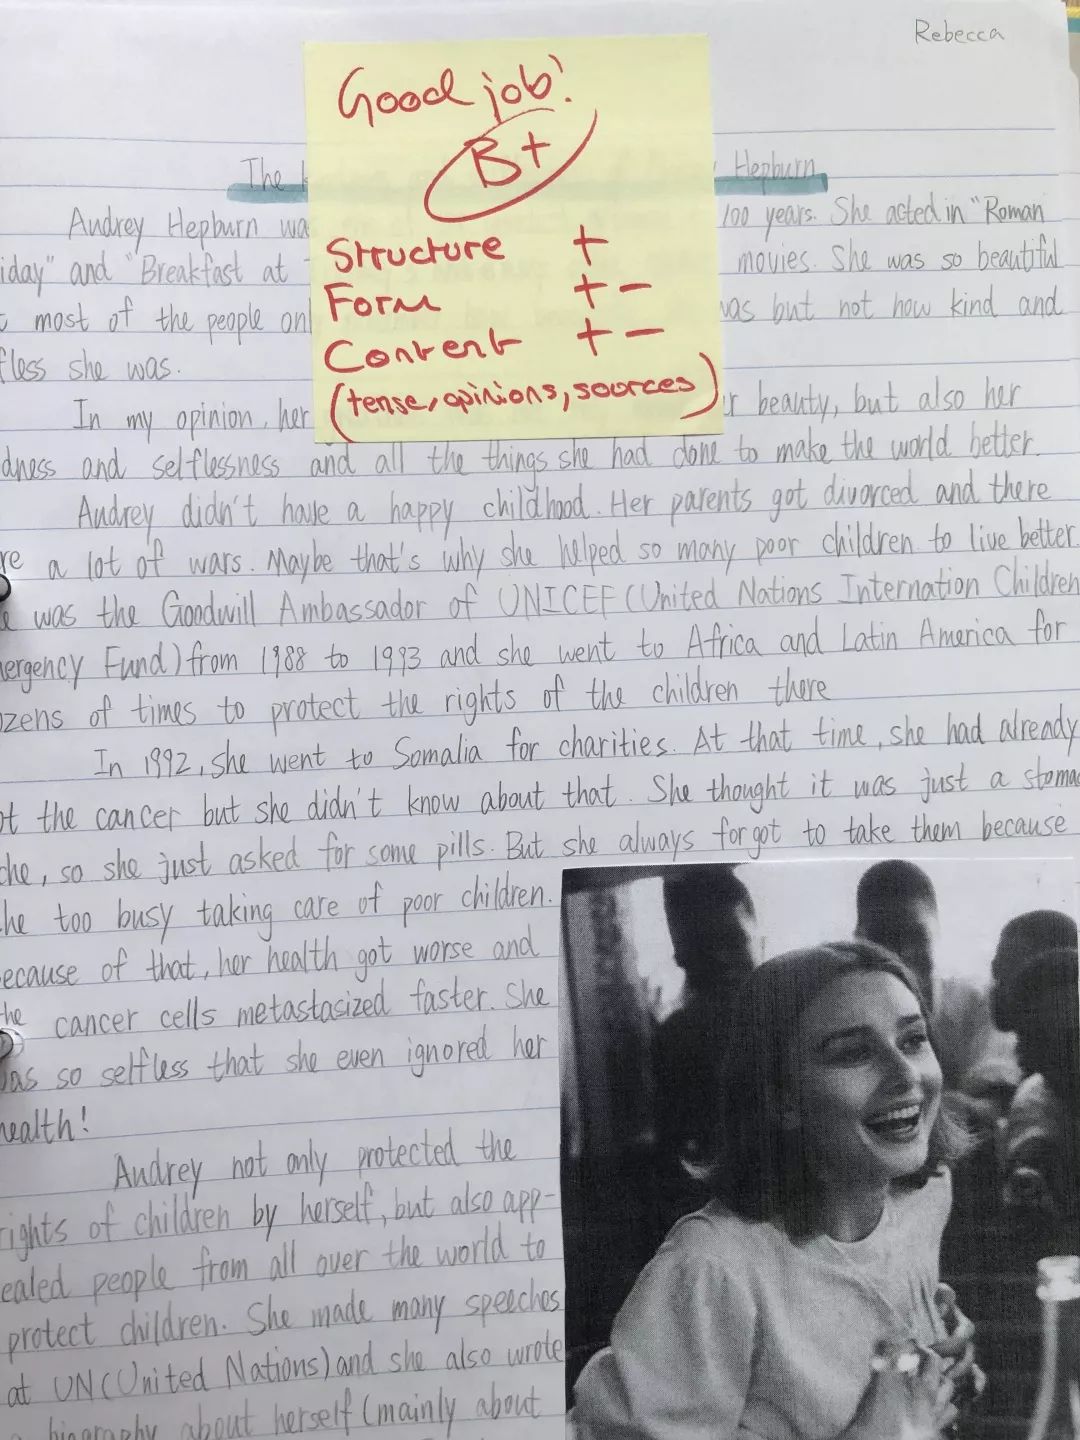 Rebecca
Good job!
B+
Structure +
Form + -
Content + -
(tense, opinions, sources)
The Hepburn
Audrey Hepburn wa 100 years. She acted in "Roman
iday" and "Breakfast at movies. She was so beautiful
most of the people on was but not how kind and
fless she was.
In my opinion, her r beauty, but also her
dness and selflessness and all the things she had done to make the world better.
Audrey didn't have a happy childhood. Her parents got divorced and there
re a lot of wars. Maybe that's why she helped so many poor children to live better.
e was the Goodwill Ambassador of UNICEF (United Nations Internation Children
ergency Fund) from 1988 to 1993 and she went to Africa and Latin America for
ozens of times to protect the rights of the children there
In 1992, she went to Somalia for charities. At that time, she had already
ot the cancer but she didn't know about that. She thought it was just a stoma
che, so she just asked for some pills. But she always forgot to take them because
he too busy taking care of poor children.
ecause of that, her health got worse and
he cancer cells metastasized faster. She
as so selfless that she even ignored her
health!
Audrey not only protected the
rights of children by herself, but also app-
ealed people from all over the world to
protect children. She made many speeches
at UN (United Nations) and she also wrote
biography about herself (mainly about